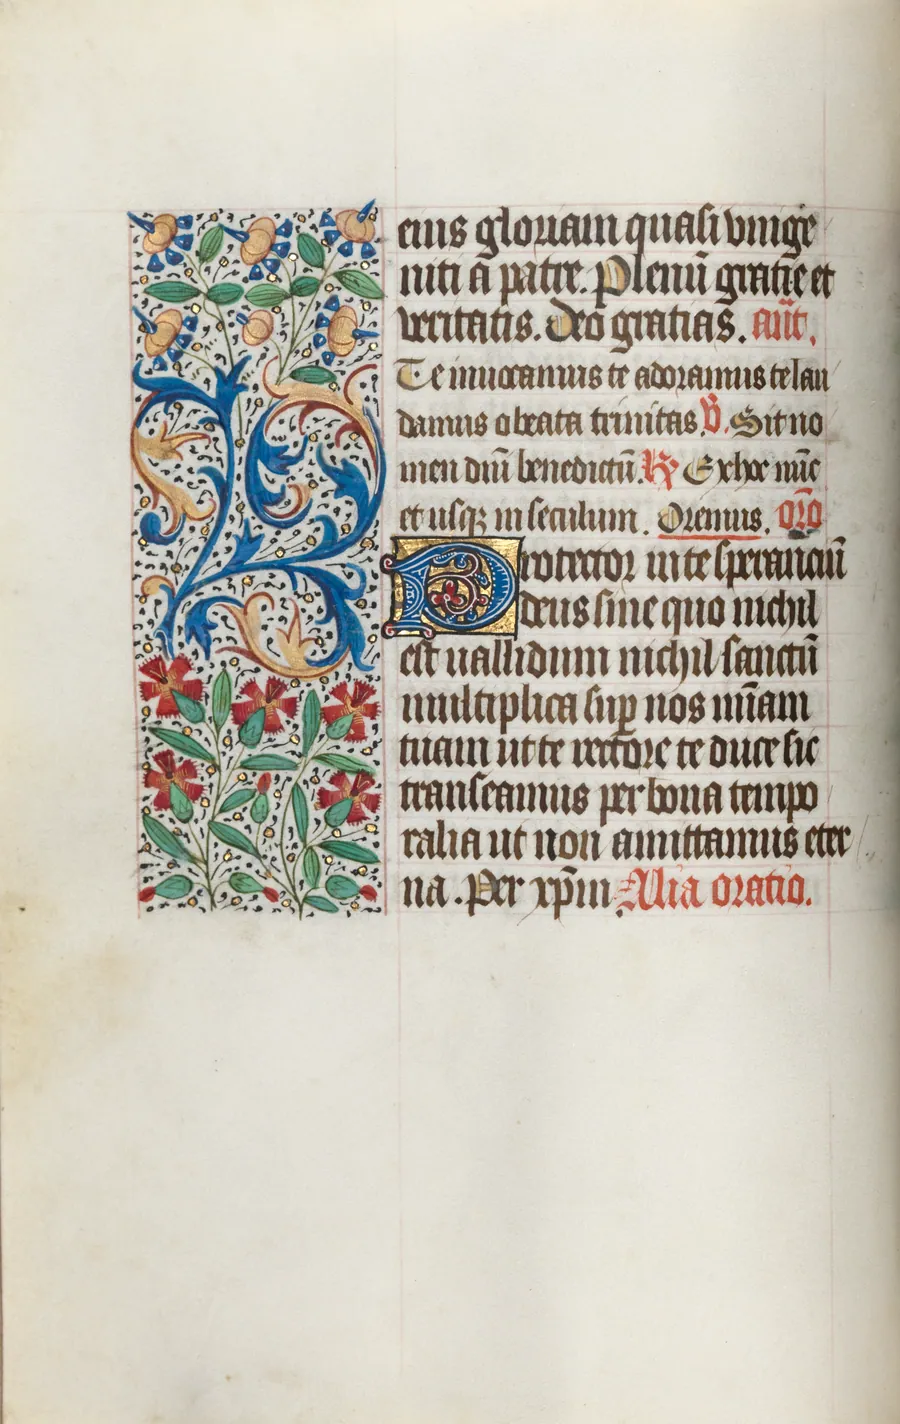 eius gloriam quasi vnige
niti a patre. Plenū gratie et
veritatis. Deo gratias. añt.
Te inuocamus te adoramus te lau
damus o beata trinitas. V̄. Sit no
men dn̄i benedictū. R̄ Ex hoc nūc
et usq; in seculum. Oremus. or̄o
Protector in te speranciū
deus sine quo nichil
est uallidum nichil sanctū
multiplica sup̱ nos mīam
tuam ut te rectore te duce sic
transeamus per bona tempo
ralia ut non amittamus eter
na. Per xp̄m Alia oratio.